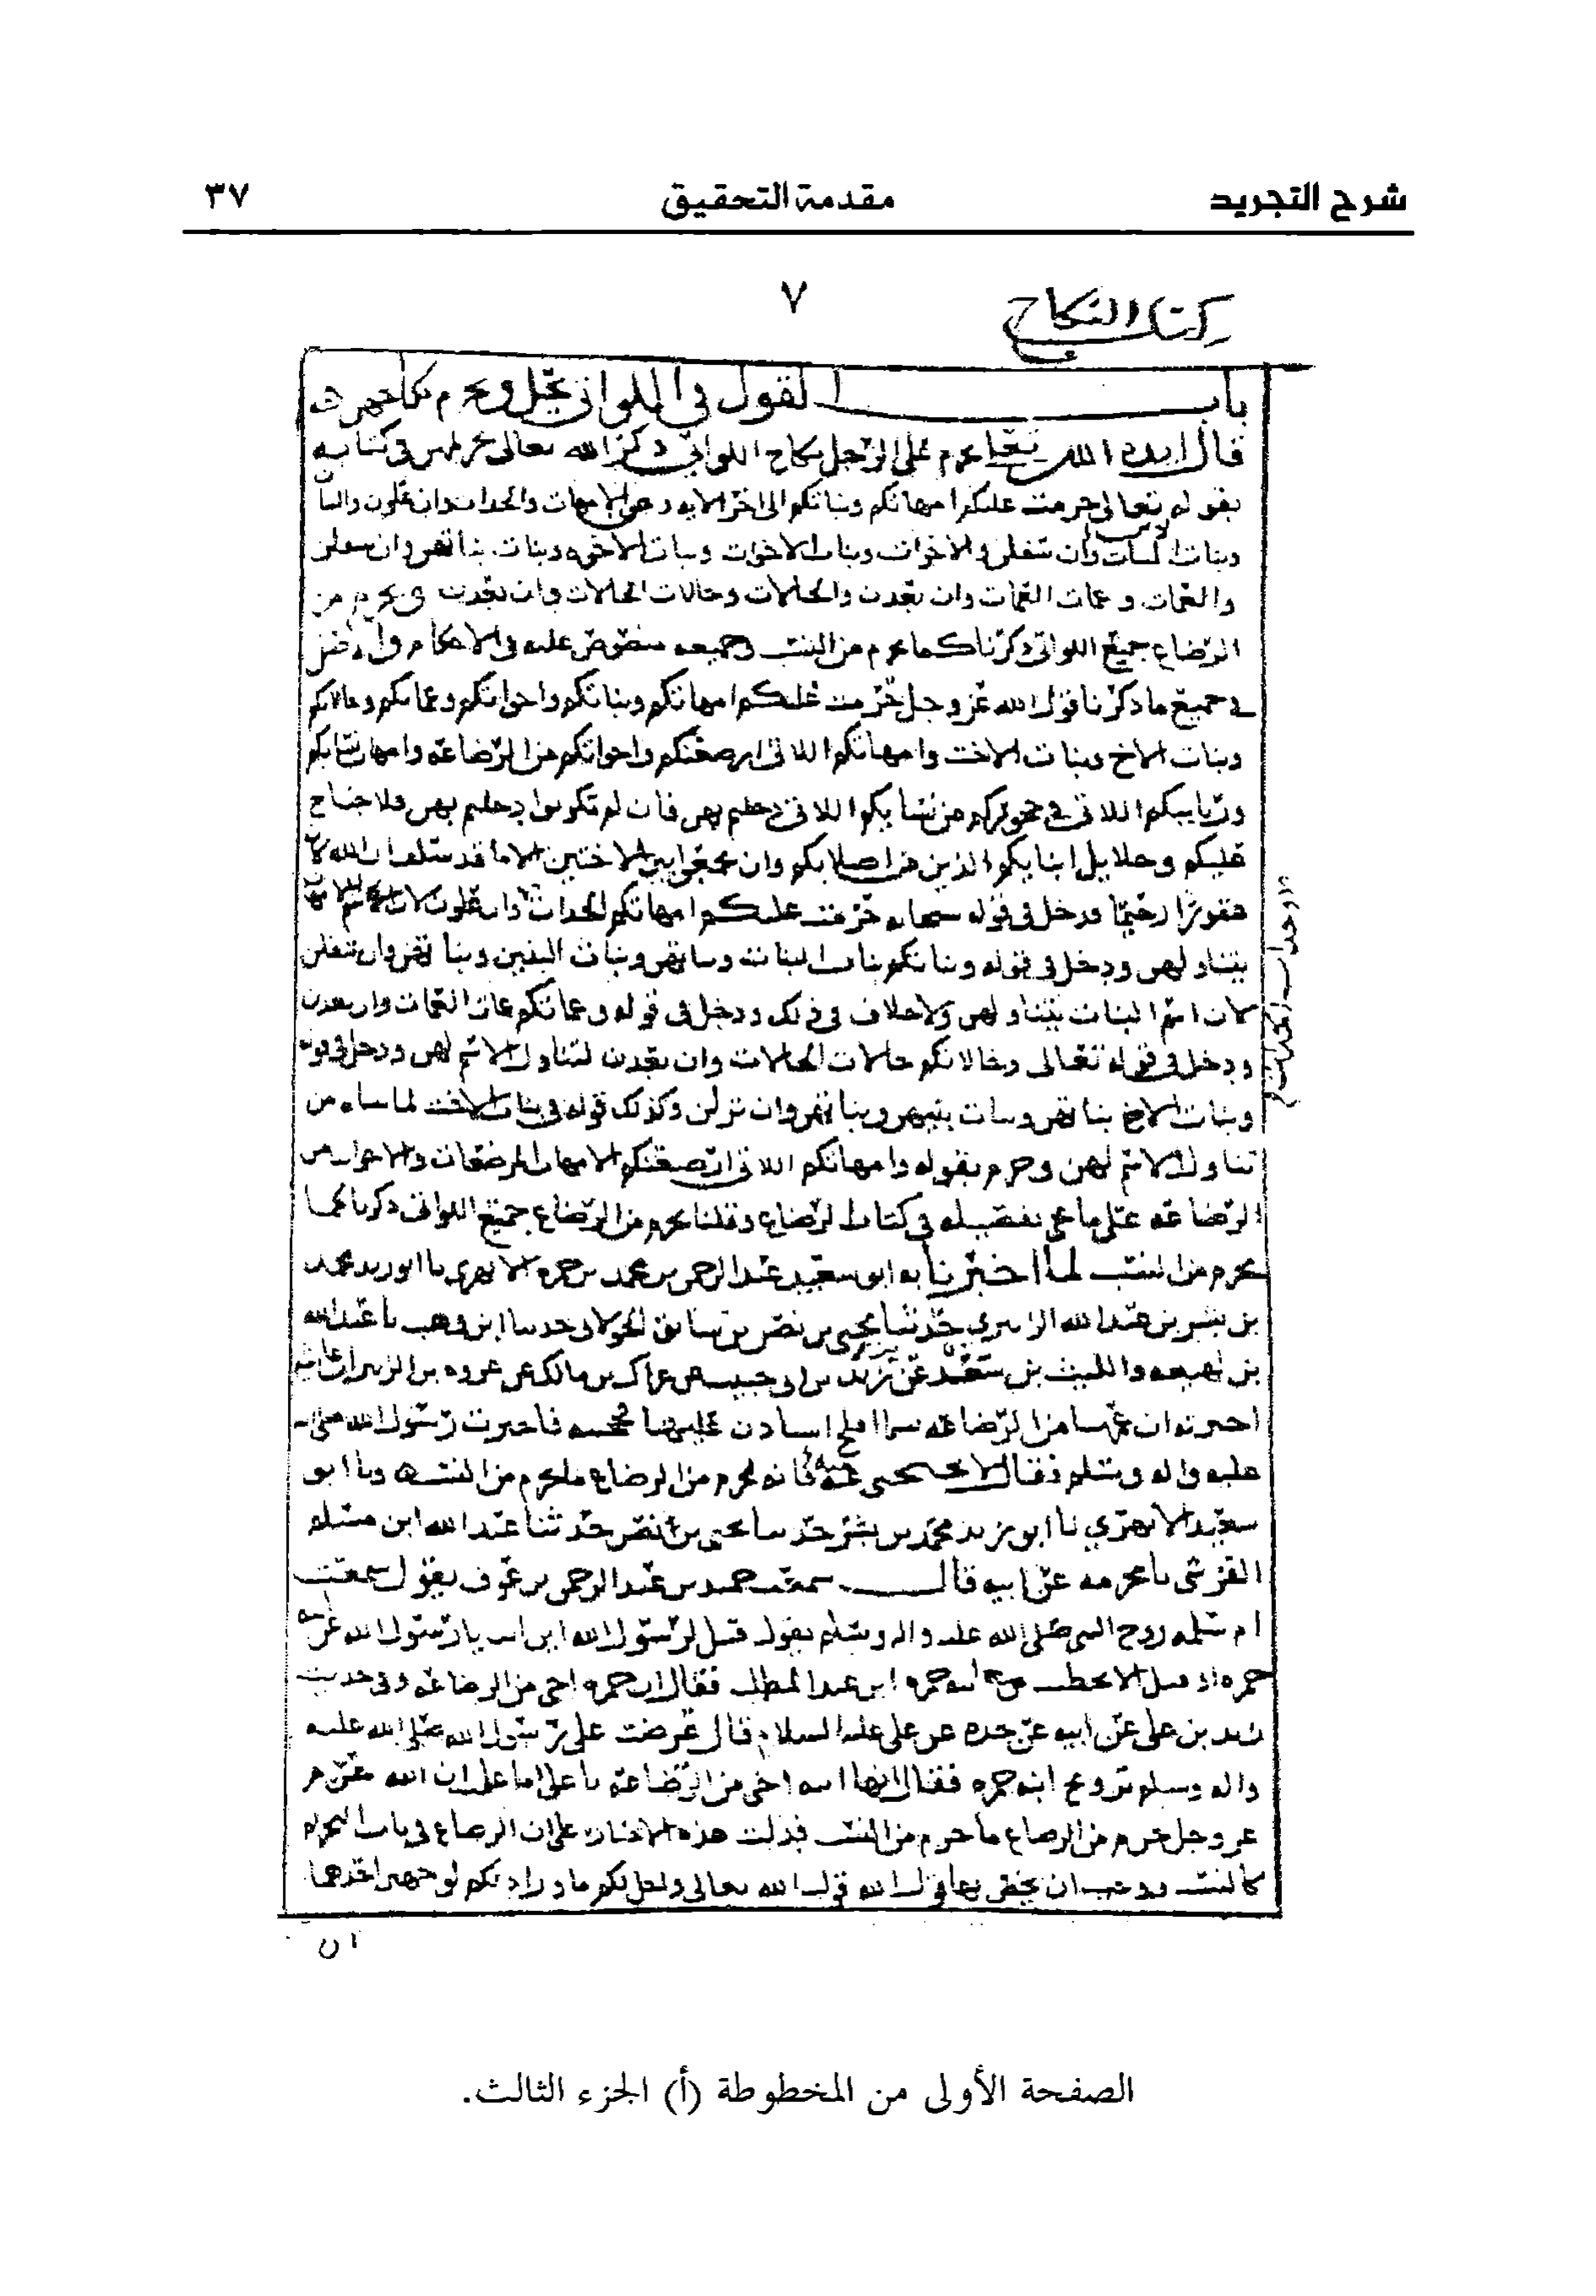 شرح التجريد
مقدمة التحقيق
٣٧
٧
كتاب النكاح
باب القول في اللواتي يحل ويحرم نكاحهن
قال ايده الله تعالى يحرم على الرجل نكاح اللواتي ذكر الله تعالى تحريمهن في كتابه
بقوله تعالى حرمت عليكم امهاتكم وبناتكم الى اخر الايه وهي الامهات والجدات وان علون والبنات
وبنات وان سفلن والاخوات وبنات الاخوات وبنات الاخوه وبنات بناتهن وان سفلن
والعمات وعمات العمات وان بعدن والخالات وخالات الخالات وان بعدن ويحرم من
الرضاع جميع اللواتي ذكرنا كما يحرم من النسب وجميعه منصوص عليه في الاحكام والاصل
في جميع ما ذكرنا قول الله عز وجل حرمت عليكم امهاتكم وبناتكم واخواتكم وعماتكم وخالاتكم
وبنات الاخ وبنات الاخت وامهاتكم اللاتي ارضعنكم واخواتكم من الرضاعه وامهات نسايكم
وربايبكم اللاتي في حجوركم من نسايكم اللاتي دخلتم بهن فان لم تكونوا دخلتم بهن فلا جناح
عليكم وحلايل ابنايكم الذين من اصلابكم وان تجمعوا بين الاختين الا ما قد سلف ان الله كان
غفورا رحيما ودخل في قوله سبحانه حرمت عليكم امهاتكم الجدات وان علون لان الاسم
يتناولهن ودخل في قوله وبناتكم بنات البنات وبناتهن وبنات البنين وبناتهن وان سفلن
لان اسم البنات يتناولهن ولا خلاف في ذلك ودخل في قوله وعماتكم عمات العمات وان بعدن
ودخل في قوله تعالى وخالاتكم خالات الخالات وان بعدن لتناول الاسم لهن ودخل في قوله
وبنات الاخ بناتهن وبنات بنيهن وبناتهن وان نزلن وكذلك قوله في بنات الاخت لما بيناه من
تناول الاسم لهن وحرم بقوله وامهاتكم اللاتي ارضعنكم الامهات المرضعات والاخوات من
الرضاعه على ما نحن نفصله في كتاب الرضاع وقلنا يحرم من الرضاع جميع اللواتي ذكرنا كما
يحرم من النسب لما اخبرنا به ابو سعيد عبد الرحمن بن محمد بن حمزه الابهري نا ابو زيد محمد
بن بشر بن عبد الله الزبيري حدثنا يحيى بن نصر بن سابق الخولاني حدثنا ابن وهب نا عبد الله
بن لهيعه والليث بن سعد عن يزيد بن ابي حبيب عن عراك بن مالك عن عروه بن الزبير ان عائشه
اخبرته ان عمها من الرضاعه يسمى افلح استاذن عليها فحجبته فاخبرت رسول الله صلى الله
عليه واله وسلم فقال لا تحتجبي عنه فانه يحرم من الرضاع ما يحرم من النسب ونا ابو
سعيد الابهري نا ابو زيد محمد بن بشر حدثنا يحيى بن نصر حدثنا عبد الله ابن مسلم
القرشي نا مخرمه عن ابيه قال سمعت حميد بن عبد الرحمن بن عوف يقول سمعت
ام سلمه زوج النبي صلى الله عليه واله وسلم تقول قيل لرسول الله اين انت يا رسول الله عن ابنة
حمزه او قيل الا تخطب ابنه حمزه ابن عبد المطلب فقال ان حمزه اخي من الرضاعه وفي حديث
زيد بن علي عن ابيه عن جده عن علي عليه السلام قال عرضت على رسول الله صلى الله عليه
واله وسلم تزويج ابنه حمزه فقال انها ابنه اخي من الرضاعه يا علي اما علمت ان الله
عز وجل حرم من الرضاع ما حرم من النسب فدلت هذه الاخبار على ان الرضاع في باب التحريم
كالنسب ووجب ان يخص بها قول الله تعالى واحل لكم ما وراء ذلكم لوجهين احدهما
ان
الصفحة الأولى من المخطوطة (أ) الجزء الثالث.